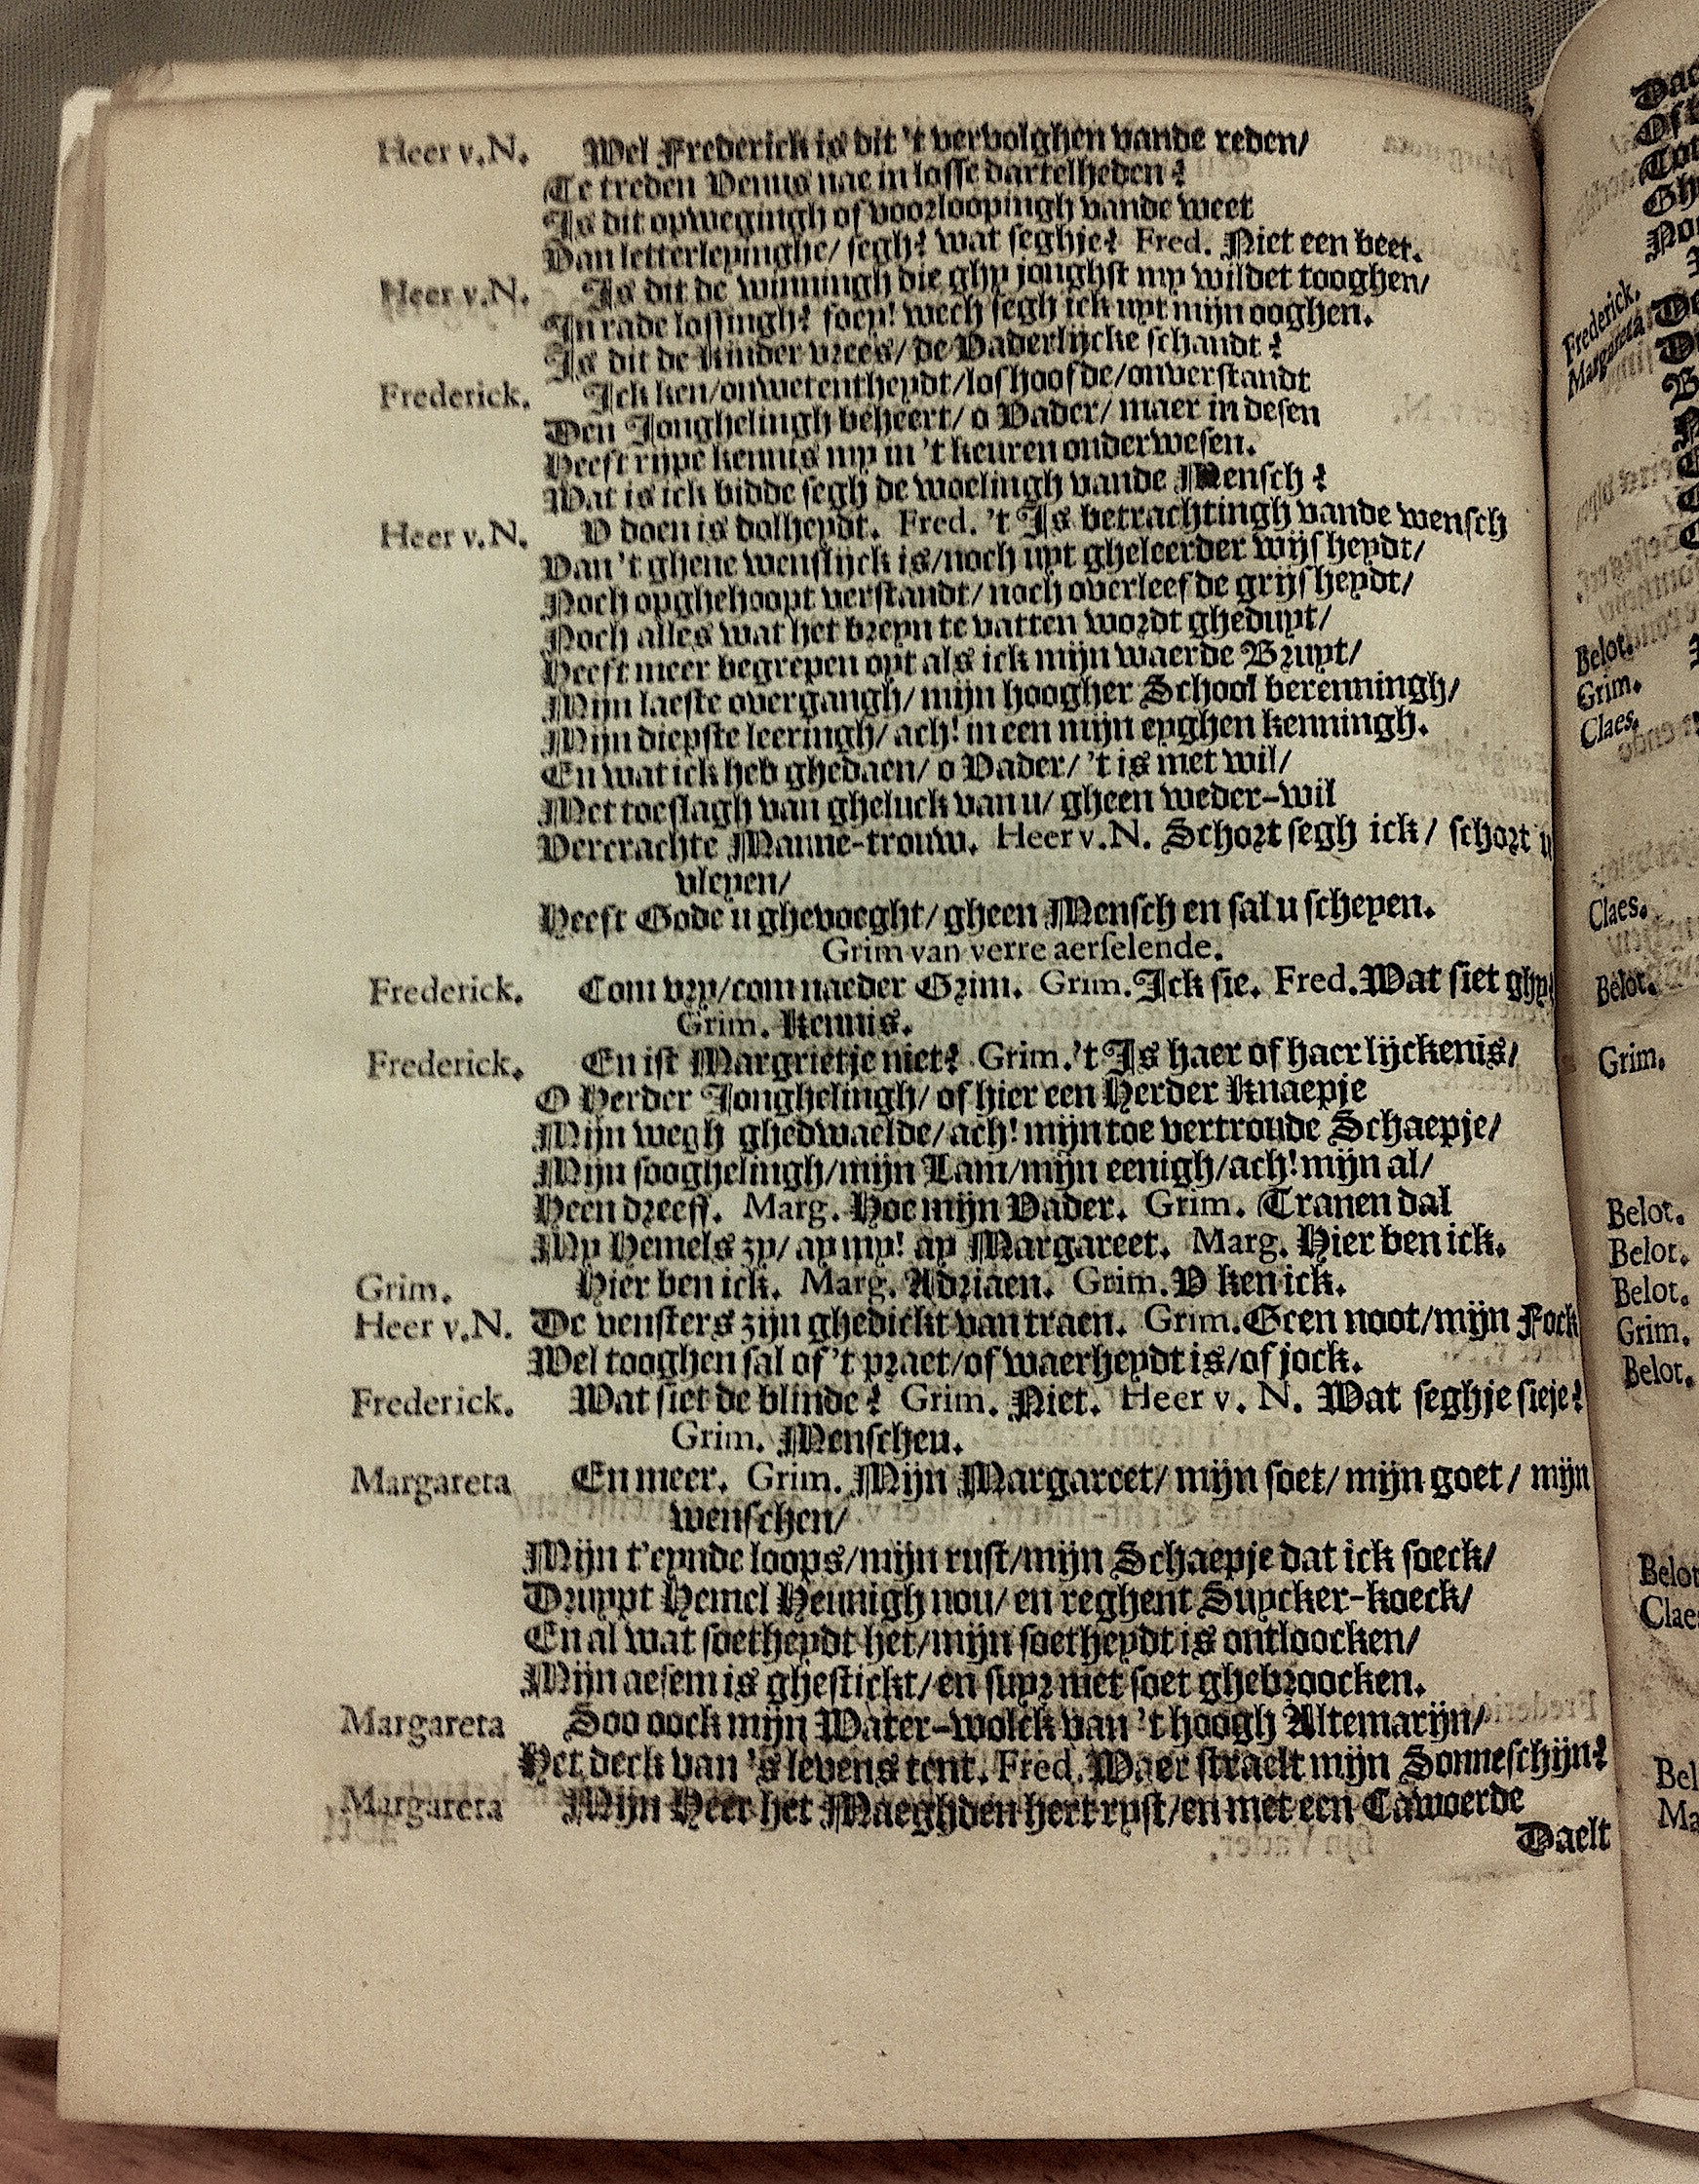 Heer v.N. Wel Frederick is dit 't vervolghen vande reden/
Te treden Venus nae in losse dartelheden?
Is dit opwegingh of voorloopingh vande weet
Van letterlepinghe/ segh? wat seghje? Fred. Niet een beet.
Heer v.N. Is dit de winningh die ghy jonghst my wildet tooghen/
In rade lossingh? foey! wech segh ick uyt mijn ooghen.
Is dit de kinder vrees/ de Vaderlijcke schandt?
Frederick. Ick ken/onwetentheydt/los hoofde/onverstandt
Den Jonghelingh beheert/ o Vader/ maer in desen
Heeft rijpe kennis my in 't keuren onderwesen.
Wat is ick bidde segh de woelingh vande Mensch?
Heer v.N. V doen is dolheydt. Fred. 't Is betrachtingh vande wensch
Van 't ghene wenslijck is/noch uyt gheleerder wijsheydt/
Noch opghehoopt verstandt/ noch overleefde grijsheydt/
Noch alles wat het breyn te vatten wordt gheduyt/
Heeft meer begrepen oyt als ick mijn waerde Bruyt/
Mijn laeste overgangh/ mijn hoogher School berenningh/
Mijn diepste leeringh/ ach! in een mijn eyghen kenningh.
En wat ick heb ghedaen/ o Vader/ 't is met wil/
Met toeslagh van gheluck van u/ gheen weder-wil
Vercrachte Manne-trouw. Heer v.N. Schort segh ick/ schort u
vleyen/
Heeft Gode u ghevoeght/gheen Mensch en sal u scheyen.
Grim van verre aerselende.
Frederick. Com vry/com naeder Grim. Grim. Ick sie. Fred. Wat siet ghy?
Grim. Kennis.
Frederick. En ist Margrietje niet? Grim. 't Is haer of haer lijckenis/
O Herder Jonghelingh/ of hier een Herder Knaepje
Mijn wegh ghedwaelde/ach! mijn toe vertroude Schaepje/
Mijn sooghelingh/mijn Lam/mijn eenigh/ach! mijn al/
Heen dreeff. Marg. Hoe mijn Vader. Grim. Tranen dal
My Hemels zy/ ay my! ay Margareet. Marg. Hier ben ick.
Grim. Hier ben ick. Marg. Adriaen. Grim. V ken ick.
Heer v.N. De vensters zijn ghedickt van traen. Grim. Geen noot/mijn Fock
Wel tooghen sal of 't praet/of waerheydt is/of jock.
Frederick. Wat siet de blinde? Grim. Niet. Heer v. N. Wat seghje sieje?
Grim. Menschen.
Margareta En meer. Grim. Mijn Margareet/ mijn soet/ mijn goet/ mijn
wenschen/
Mijn t'eynde loops/mijn rust/mijn Schaepje dat ick soeck/
Druypt Hemel Heunigh nou/ en reghent Suycker-koeck/
En al wat soetheydt het/mijn soetheydt is ontloocken/
Mijn aesem is ghestickt/en suyr met soet ghebroocken.
Margareta Soo oock mijn Water-wolck van 't hoogh Altemarijn/
Het deck van 's levens tent. Fred. Waer straelt mijn Sonneschijn?
Margareta Mijn Heer het Maeghden hert ryst/en met een Cawoerde
Daelt
Frederick.
Margareta
Belot.
Grim.
Claes.
Claes.
Belot.
Grim.
Belot.
Belot.
Belot.
Grim.
Belot.